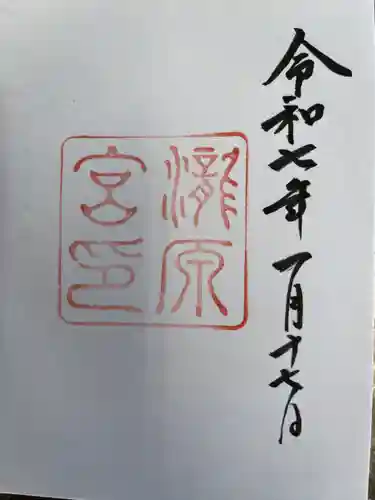 令和七年一月十七日
瀧原
宮印